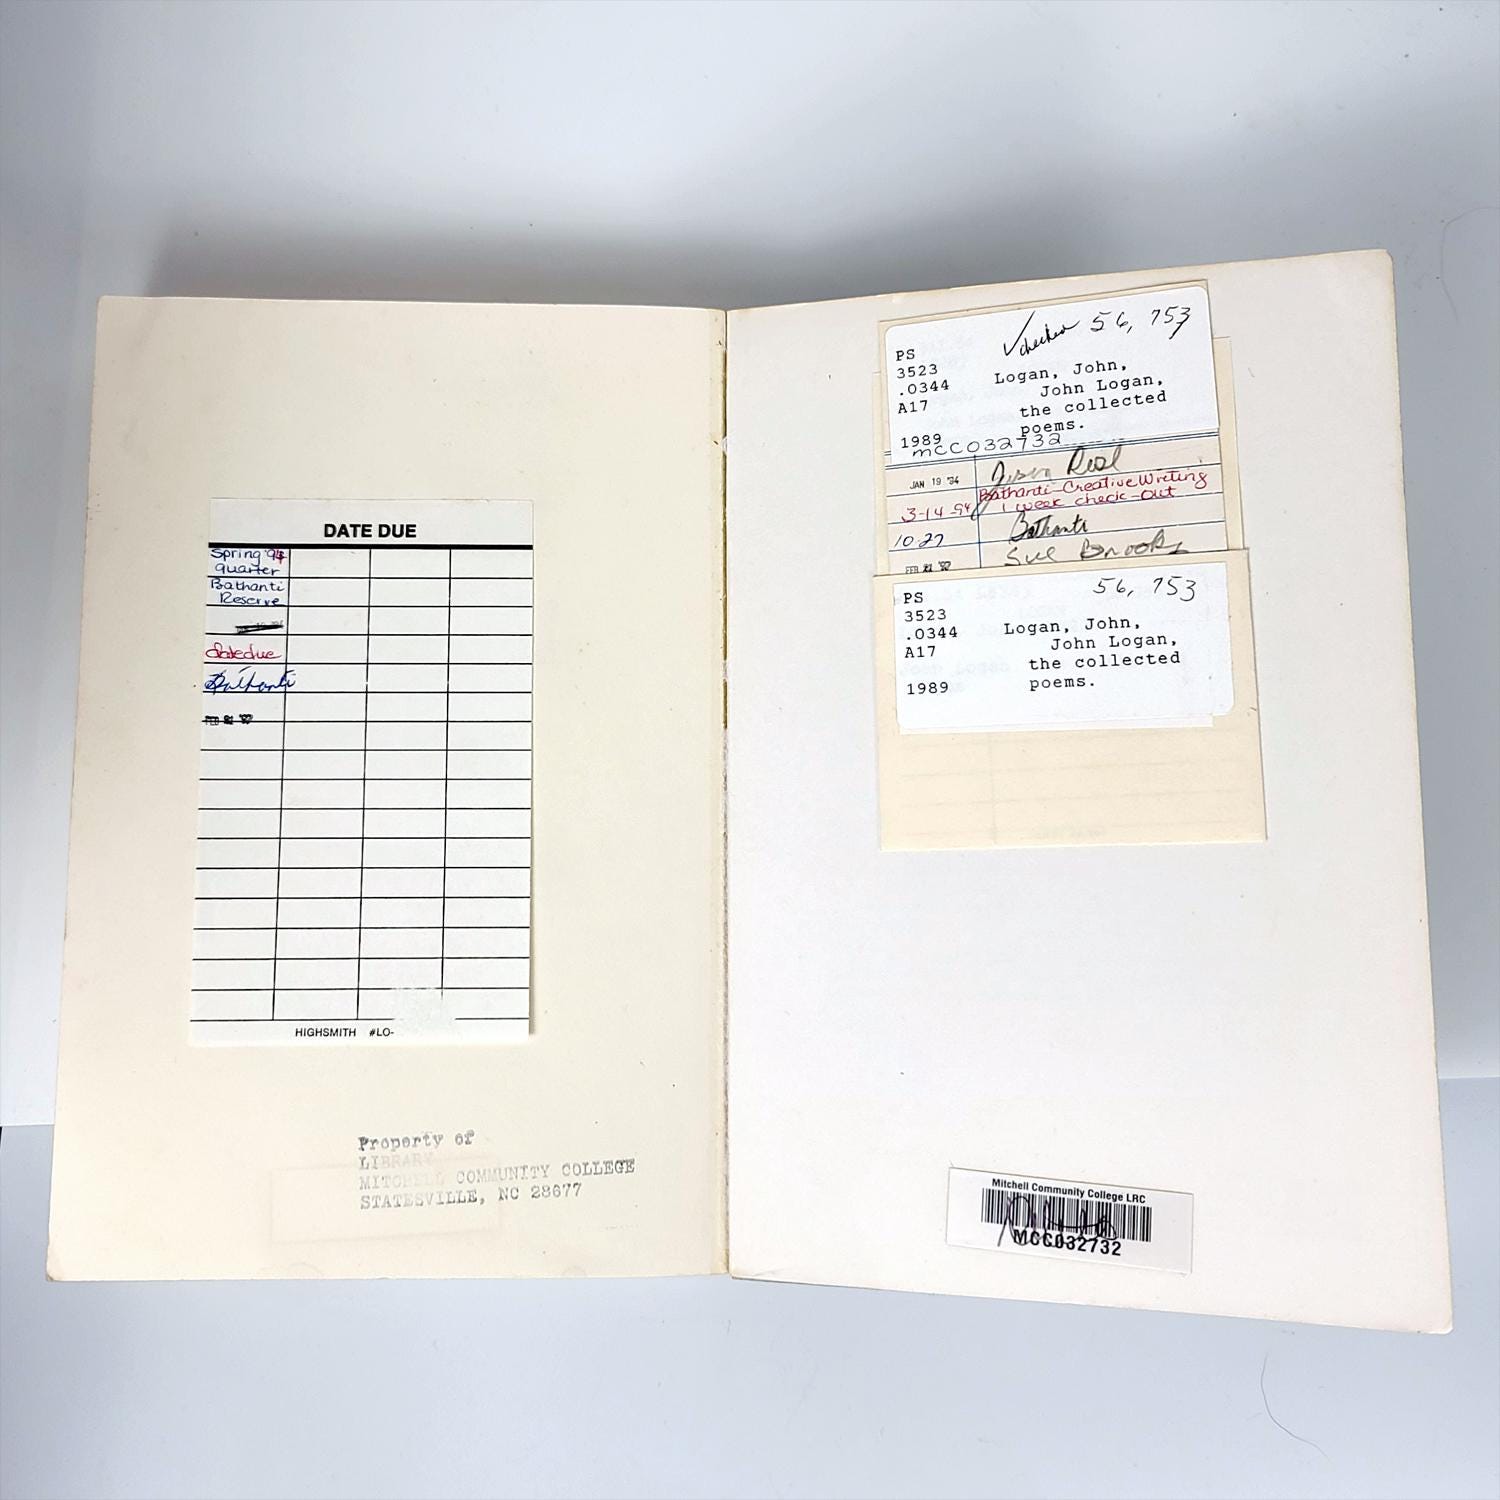 DATE DUE
Spring '94
quarter
Bathanti
Reserve
date due
Bathanti
FEB 21 '97
HIGHSMITH #LO-
Property of
LIBRARY
MITCHELL COMMUNITY COLLEGE
STATESVILLE, NC 28677
√checked 56, 753
PS
3523
.O344
A17
1989
Logan, John,
John Logan,
the collected
poems.
MCC032732
JAN 19 '94
3-14-94 Bathanti-Creative Writing
1 week check-out
10-27 Bathanti
FEB 21 '97 Sue Brooks
56, 753
PS
3523
.O344
A17
1989
Logan, John,
John Logan,
the collected
poems.
Mitchell Community College LRC
MCC032732